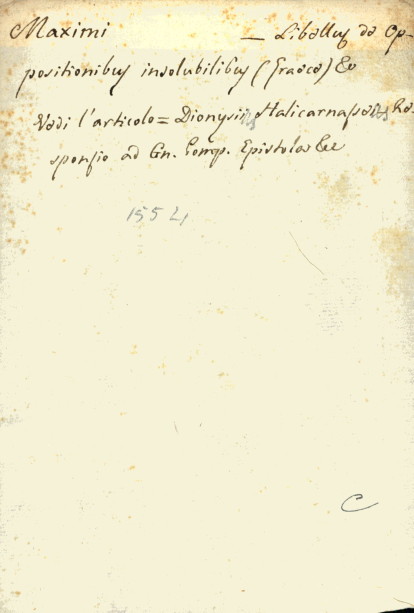 Maximi — Libellus de Op-
positionibus insolubilibus (Graece) &c
Vedi l'articolo = Dionysii Halicarnassei Re-
sponsio ad Gn. Pomp. Epistolas &c
1554
C